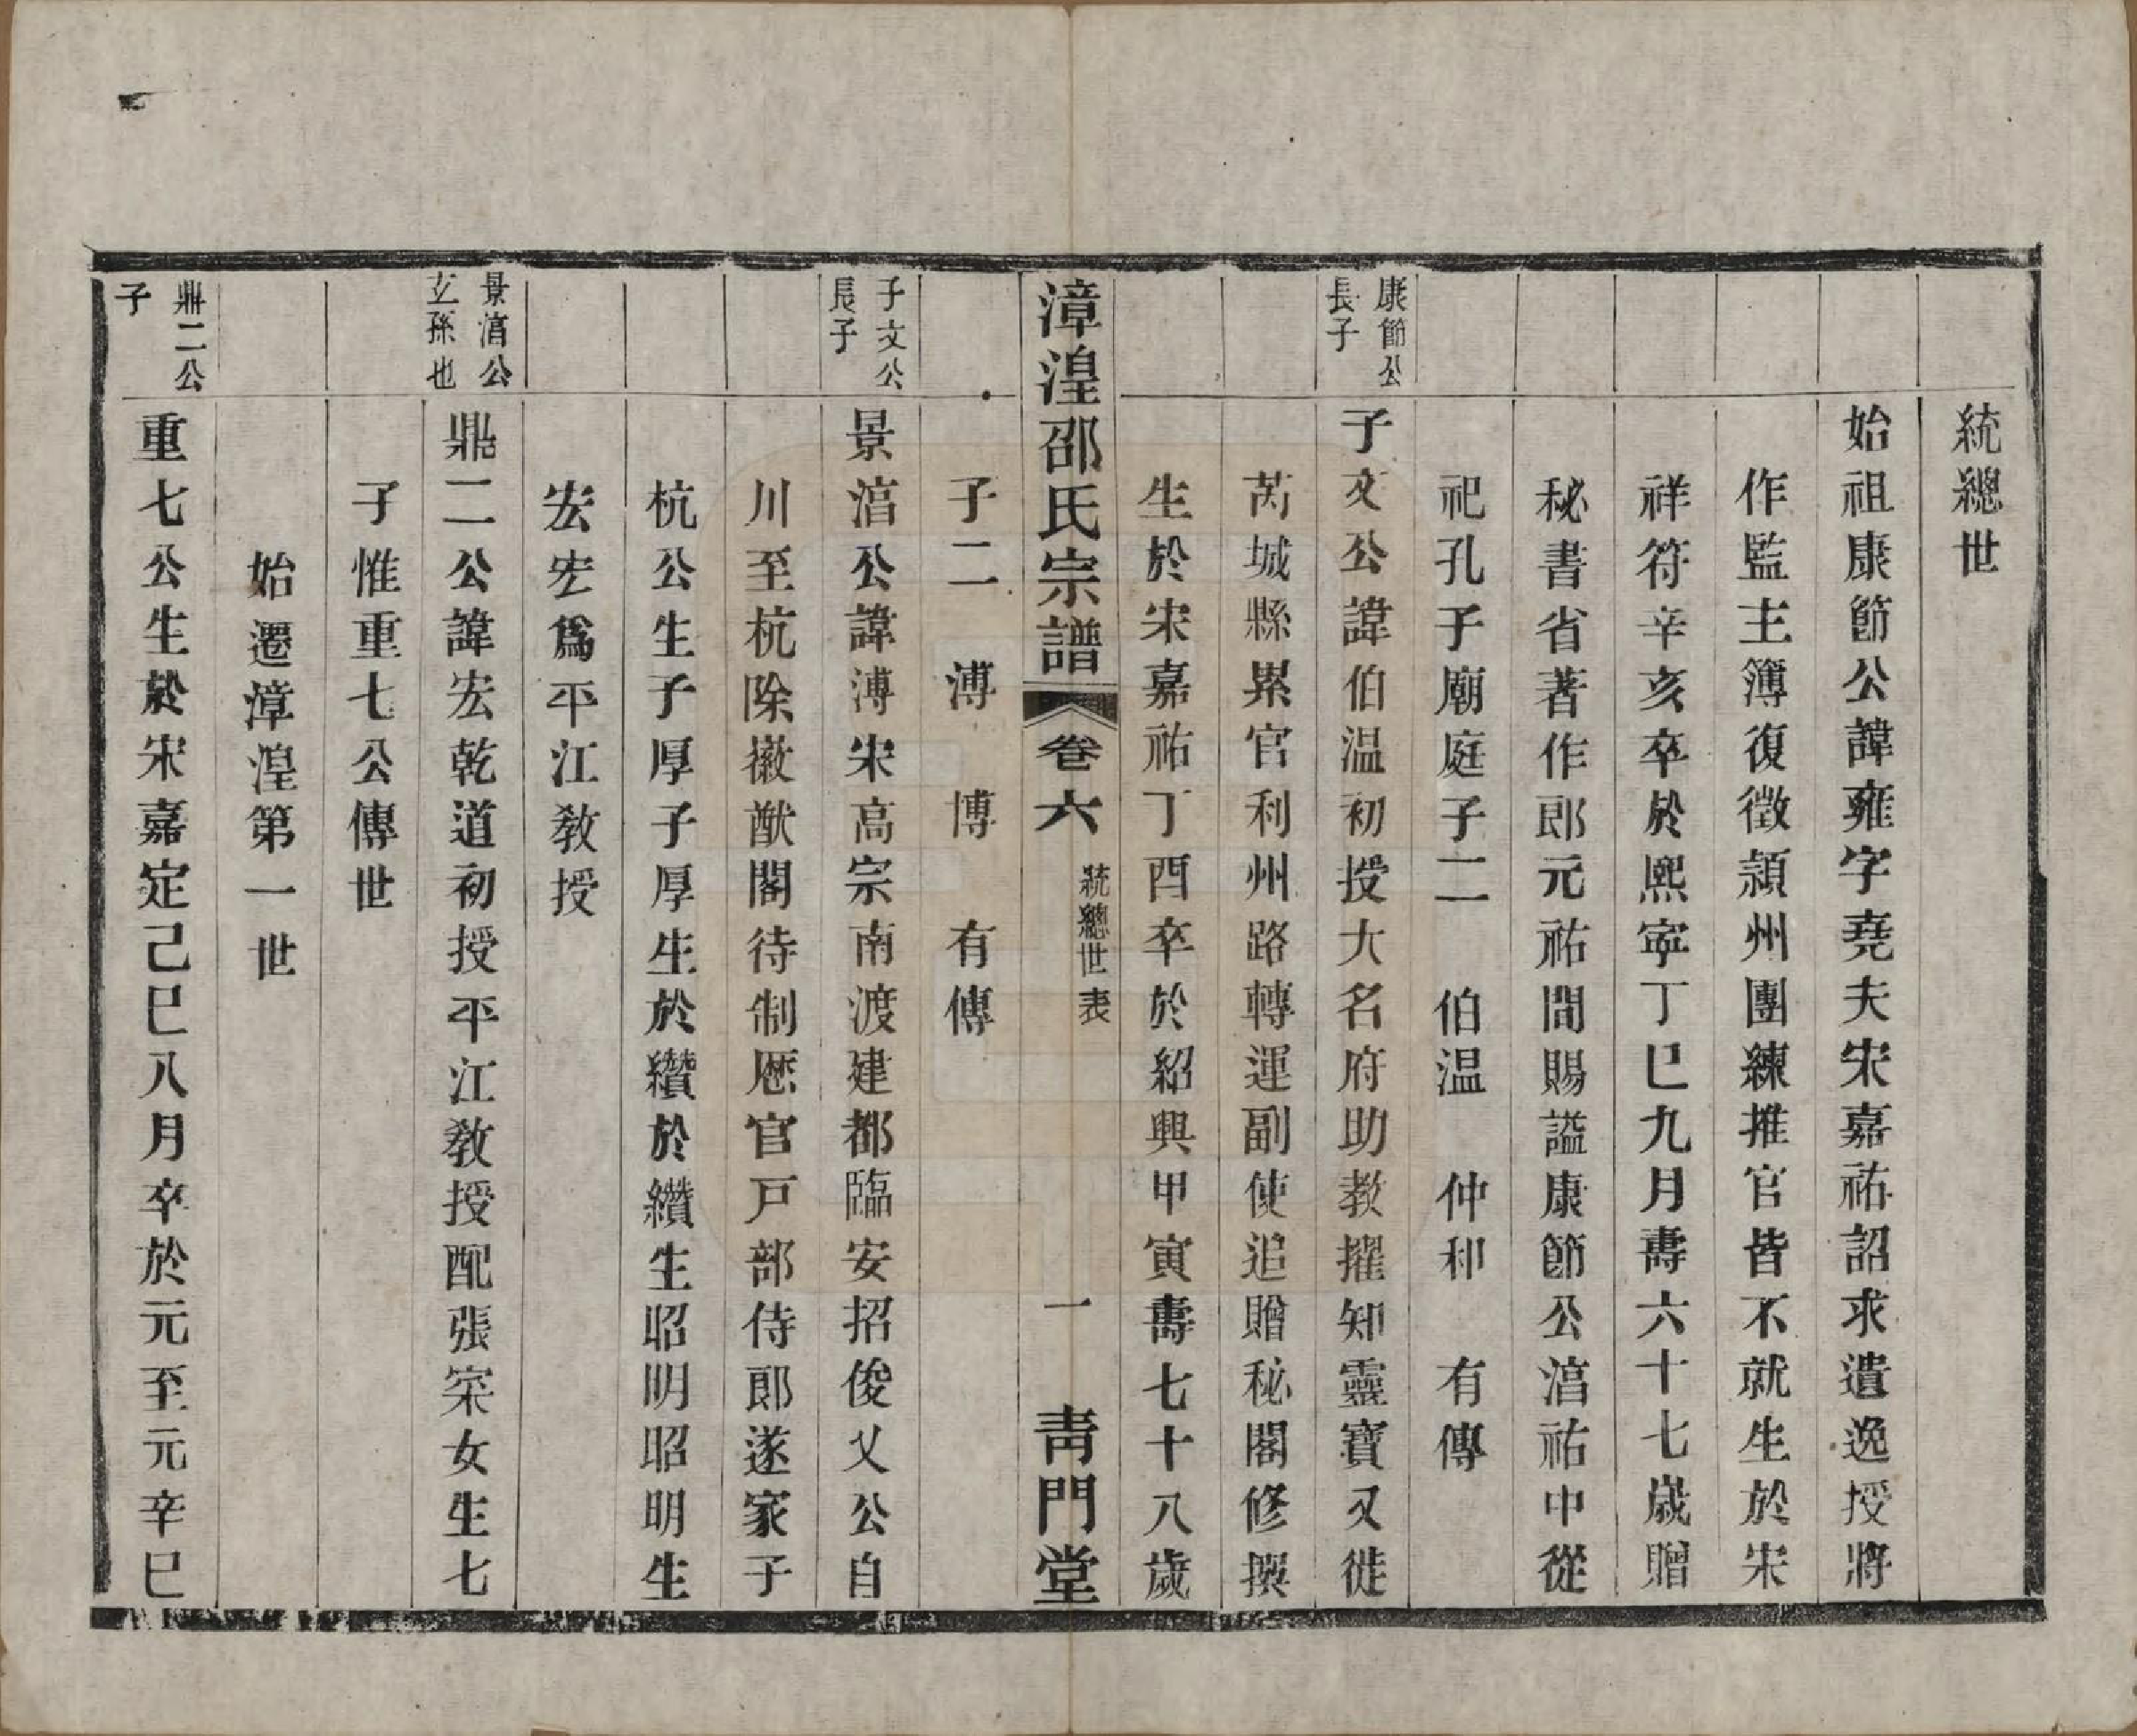 統總世
始祖康節公諱雍字堯夫宋嘉祐詔求遺逸授將
作監主簿復徵潁州團練推官皆不就生於宋
祥符辛亥卒於熙寧丁巳九月壽六十七歲贈
秘書省著作郎元祐間賜謚康節公湻祐中從
祀孔子廟庭子二 伯温 仲和 有傳
康節公
長子
子文公諱伯温初授大名府助教擢知靈寶又徙
芮城縣累官利州路轉運副使追贈秘閣修撰
生於宋嘉祐丁酉卒於紹興甲寅壽七十八歲
漳湟邵氏宗譜 卷六 統總世表 一 靑門堂
子二 溥 博 有傳
子文公
長子
景湻公諱溥宋高宗南渡建都臨安招俊乂公自
川至杭除徽猷閣待制歷官戸部侍郎遂家子
杭公生子厚子厚生於纘於纘生昭明昭明生
宏宏爲平江教授
景湻公
玄孫也
鼎二公諱宏乾道初授平江教授配張寀女生七
子惟重七公傳世
始遷漳湟第一世
鼎二公
子
重七公生於宋嘉定己巳八月卒於元至元辛巳